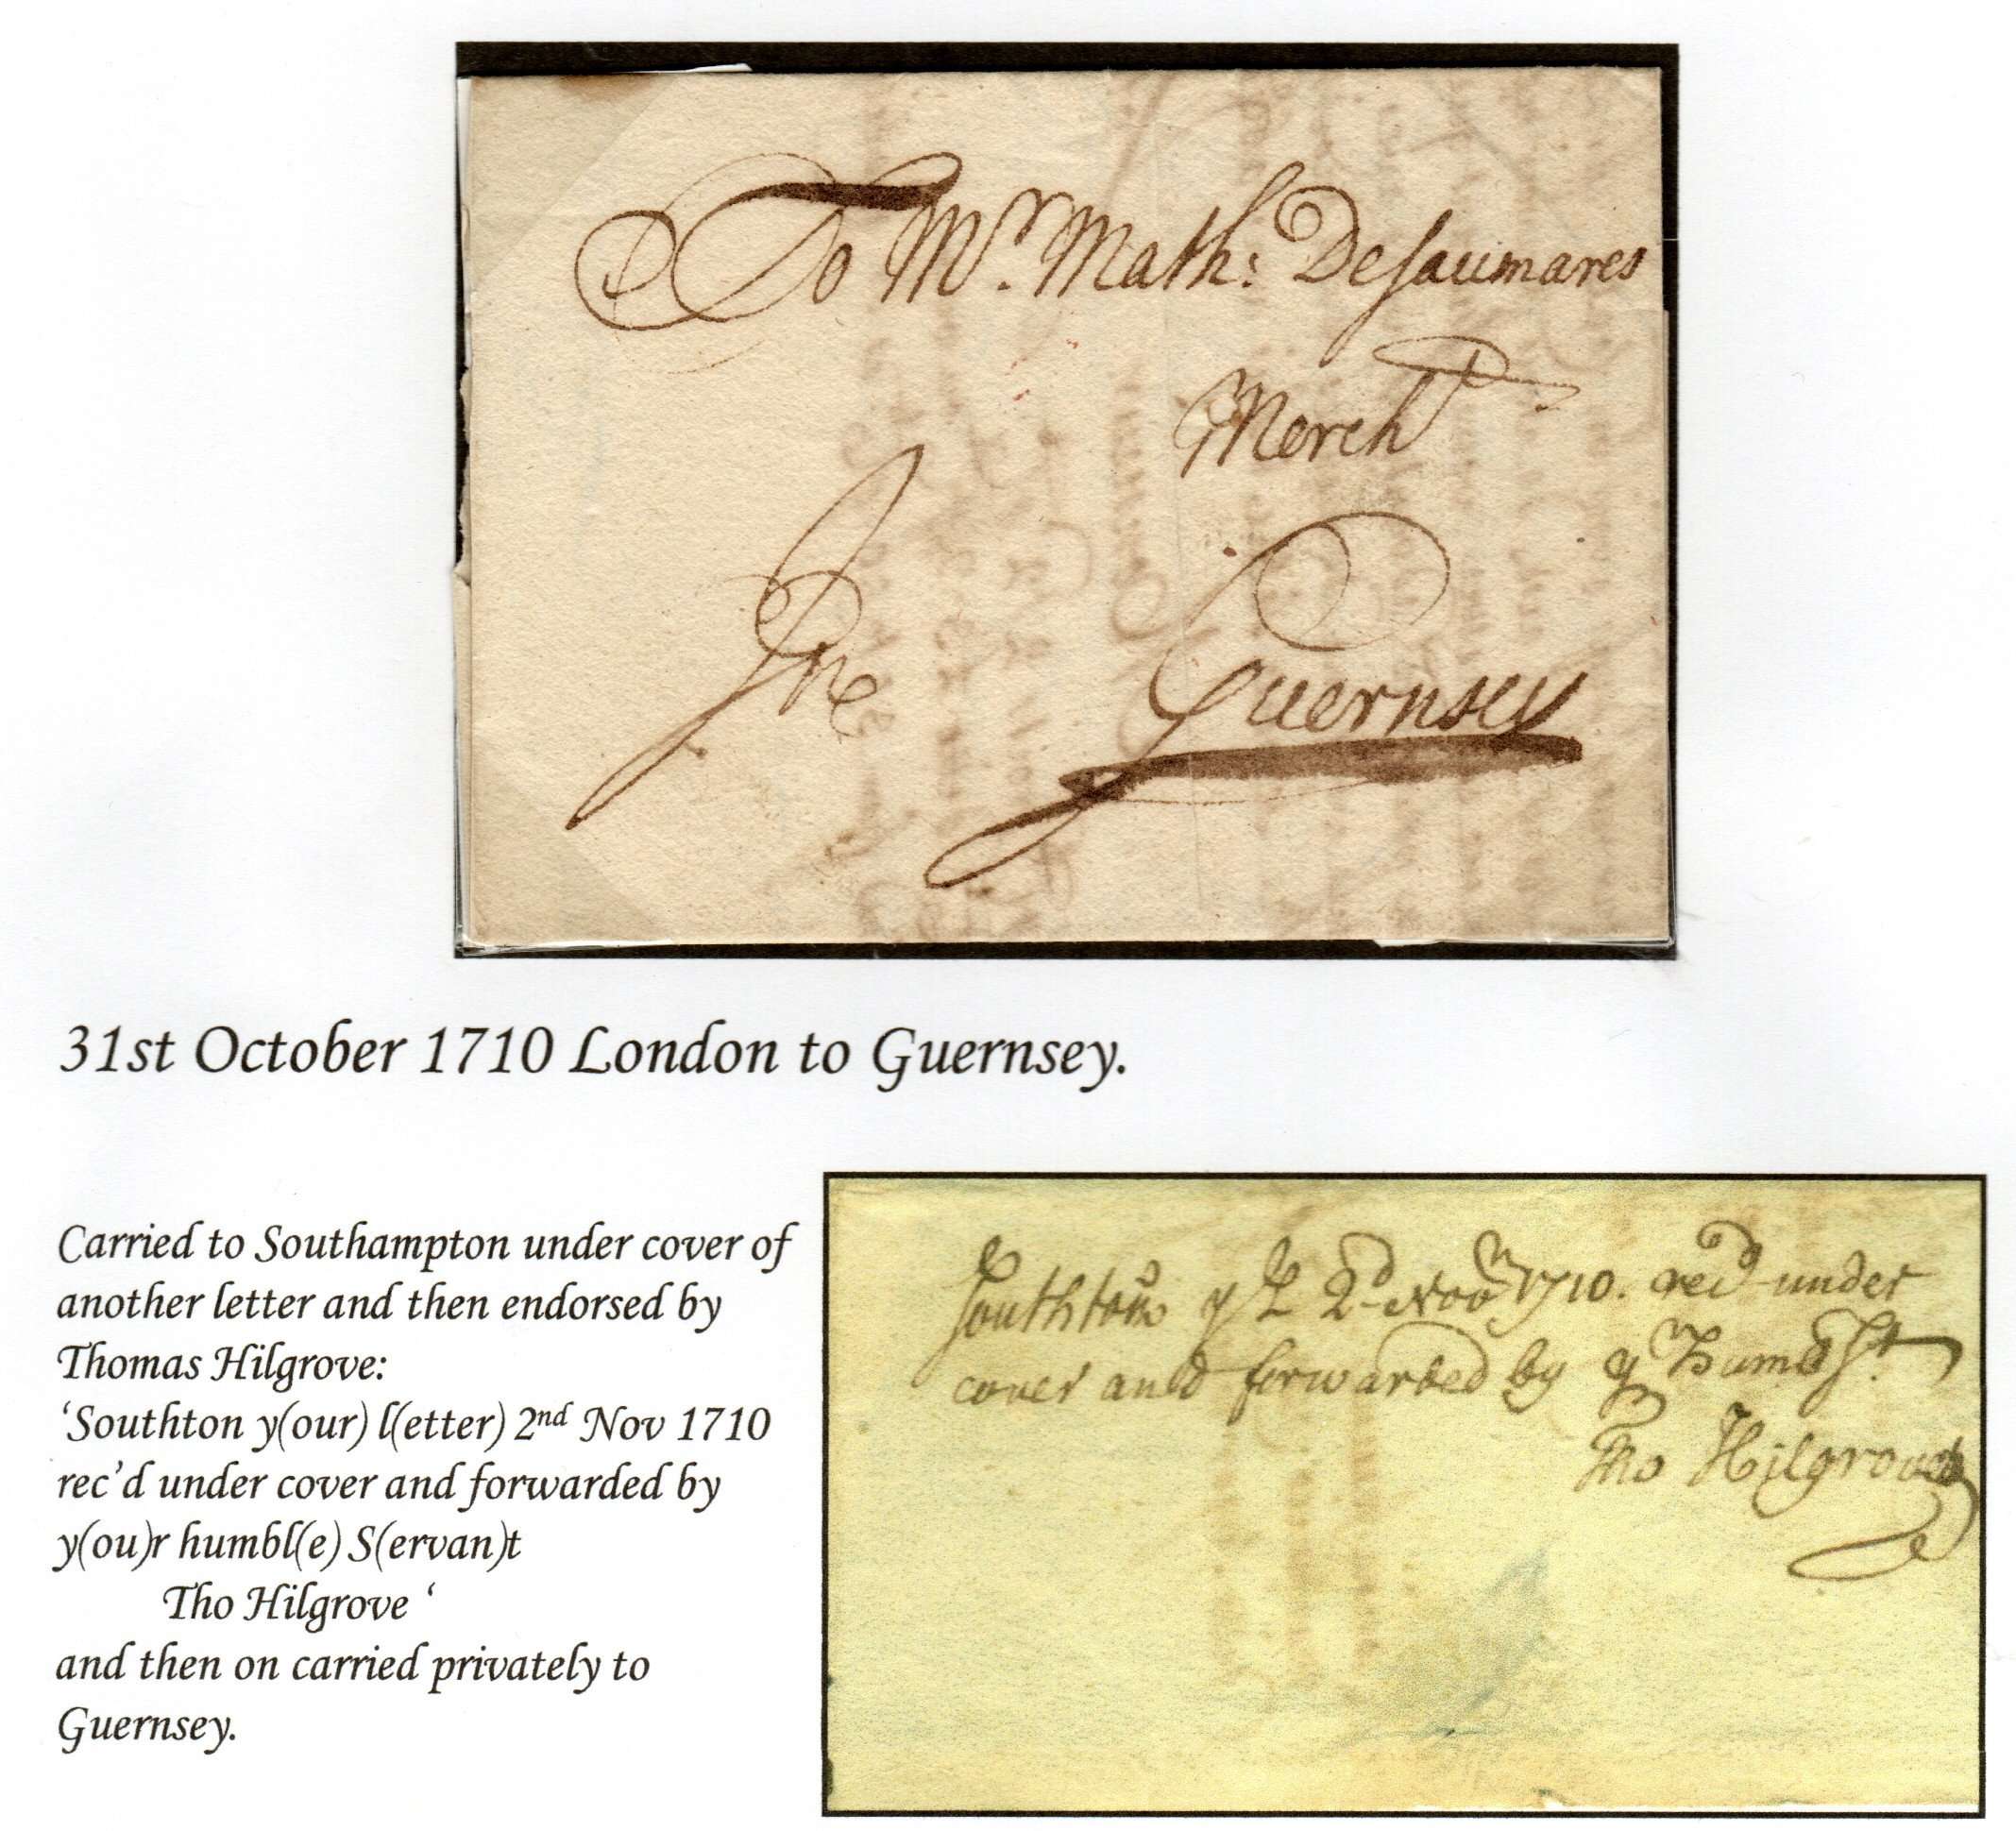 To Mr. Math: DeSaumares
Mercht
Jne Guernsey
31st October 1710 London to Guernsey.
Carried to Southampton under cover of
another letter and then endorsed by
Thomas Hilgrove:
‘Southton y(our) l(etter) 2nd Nov 1710
rec’d under cover and forwarded by
y(ou)r humbl(e) S(ervan)t
Tho Hilgrove ‘
and then on carried privately to
Guernsey.
Southton ye 2d Nov 1710. recd under
cover and forwarded by yr Humb St
Tho Hilgrove